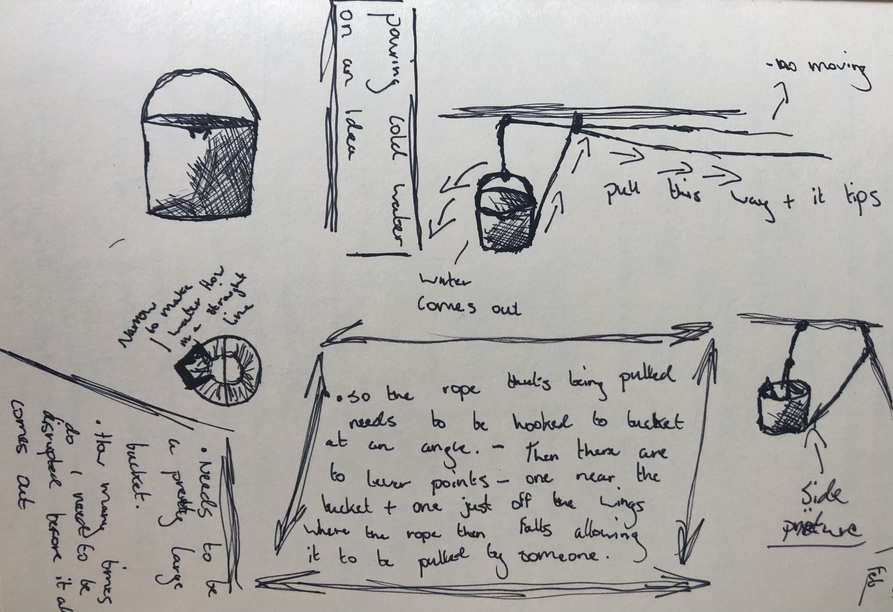 pouring cold water
on an Idea
- no moving
pull this way + it tips
water
comes out
Narrow
to make
water flow
in a straight
line
. so the rope that's being pulled
needs to be hooked to bucket
at an angle. - Then there are
to lever points - one near the
bucket + one just off the wings
where the rope then falls allowing
it to be pulled by someone.
Side
picture
. Needs to be
a pretty large
bucket.
. How many times
do I need to be
before it al
comes out